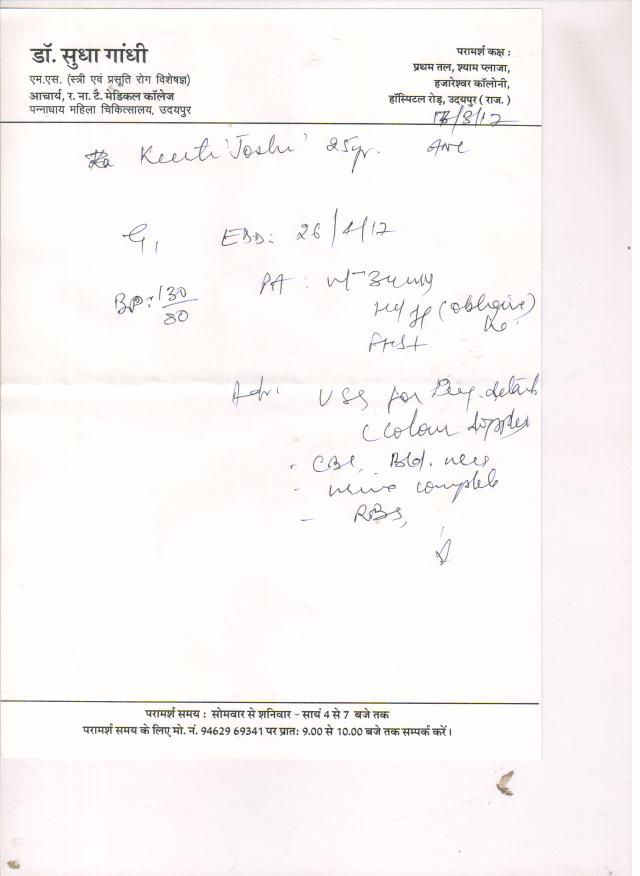 डॉ. सुधा गांधी
एम.एस. (स्त्री एवं प्रसूति रोग विशेषज्ञ)
आचार्य, र. ना. टै. मेडिकल कॉलेज
पन्नाधाय महिला चिकित्सालय, उदयपुर
परामर्श कक्ष :
प्रथम तल, श्याम प्लाजा,
हजारेश्वर कॉलोनी,
हॉस्पिटल रोड़, उदयपुर ( राज. )
/3/12
Joshi 25yr. ANC
G1 EDD: 26/4/12
BP: 130/80
PA :
(oblique)
FHS+
Adv. USG for
Colour doppler
- CBC, Bld.
- complete
- RBS,
परामर्श समय : सोमवार से शनिवार - सायं 4 से 7 बजे तक
परामर्श समय के लिए मो. नं. 94629 69341 पर प्रातः 9.00 से 10.00 बजे तक सम्पर्क करें।